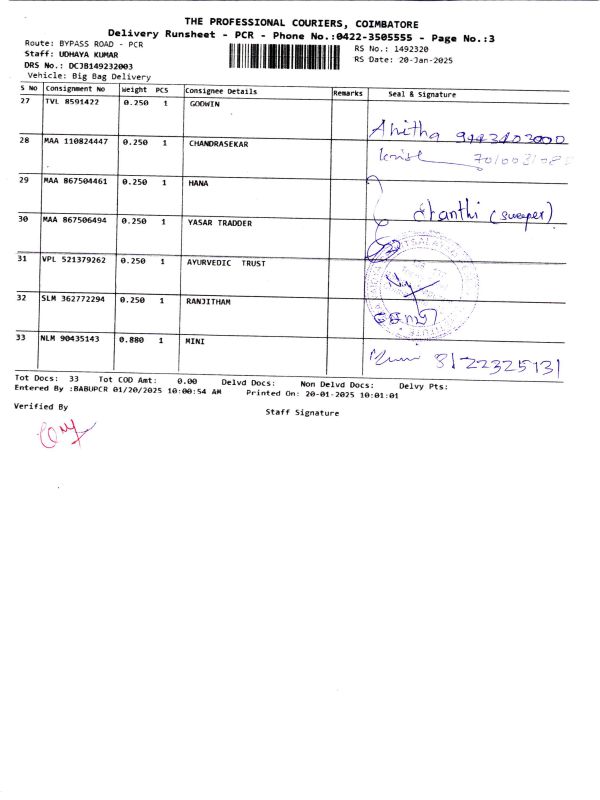 THE PROFESSIONAL COURIERS, COIMBATORE
Delivery Runsheet - PCR - Phone No.:0422-3505555 - Page No.:3
Route: BYPASS ROAD - PCR
RS No.: 1492320
Staff: UDHAYA KUMAR
RS Date: 20-Jan-2025
DRS No.: DCJB149232003
Vehicle: Big Bag Delivery
S No Consignment No Weight PCS Consignee Details Remarks Seal & Signature
27 TVL 8591422 0.250 1 GODWIN
Ahitha
28 MAA 110824447 0.250 1 CHANDRASEKAR
29 MAA 867504461 0.250 1 HANA
Shanthi (sweeper)
30 MAA 867506494 0.250 1 YASAR TRADDER
31 VPL 521379262 0.250 1 AYURVEDIC TRUST
32 SLM 362772294 0.250 1 RANJITHAM
33 NLM 90435143 0.880 1 MINI
Tot Docs: 33 Tot COD Amt: 0.00 Delvd Docs: Non Delvd Docs: Delvy Pts:
Entered By :BABUPCR 01/20/2025 10:00:54 AM Printed On: 20-01-2025 10:01:01
Verified By
Staff Signature